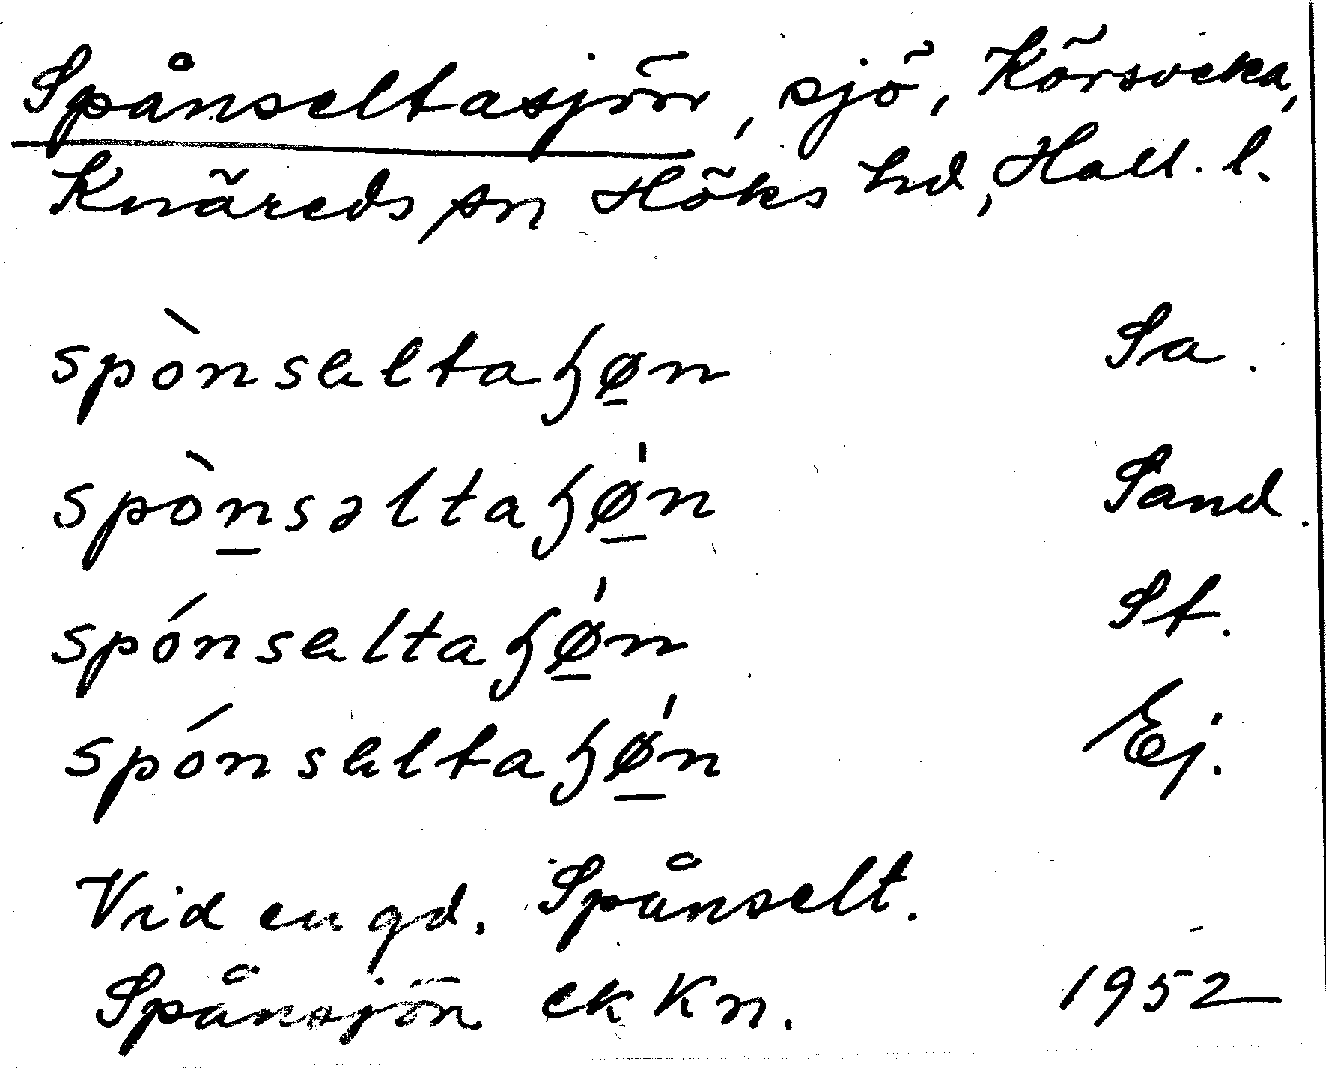 Spånseltasjön, sjö, Körsveka,
Knäreds sn Höks hd, Hall. l.
spònsæltaɧø̲n Sa.
spòn̲səltaɧǿ̲n Sand.
spónsæltaɧǿ̲n St.
spónsæltaɧǿ̲n Ej.
Vid en gd. Spånselt.
Spånsjön ek Kn. 1952